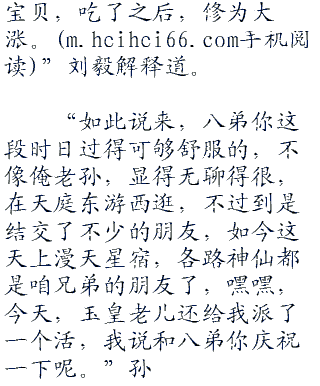 宝贝，吃了之后，修为大
涨。(m.hcihci66.com手机阅
读)”刘毅解释道。
“如此说来，八弟你这
段时日过得可够舒服的，不
像俺老孙，显得无聊得很，
在天庭东游西逛，不过到是
结交了不少的朋友，如今这
天上漫天星宿，各路神仙都
是咱兄弟的朋友了，嘿嘿，
今天，玉皇老儿还给我派了
一个活，我说和八弟你庆祝
一下呢。”孙